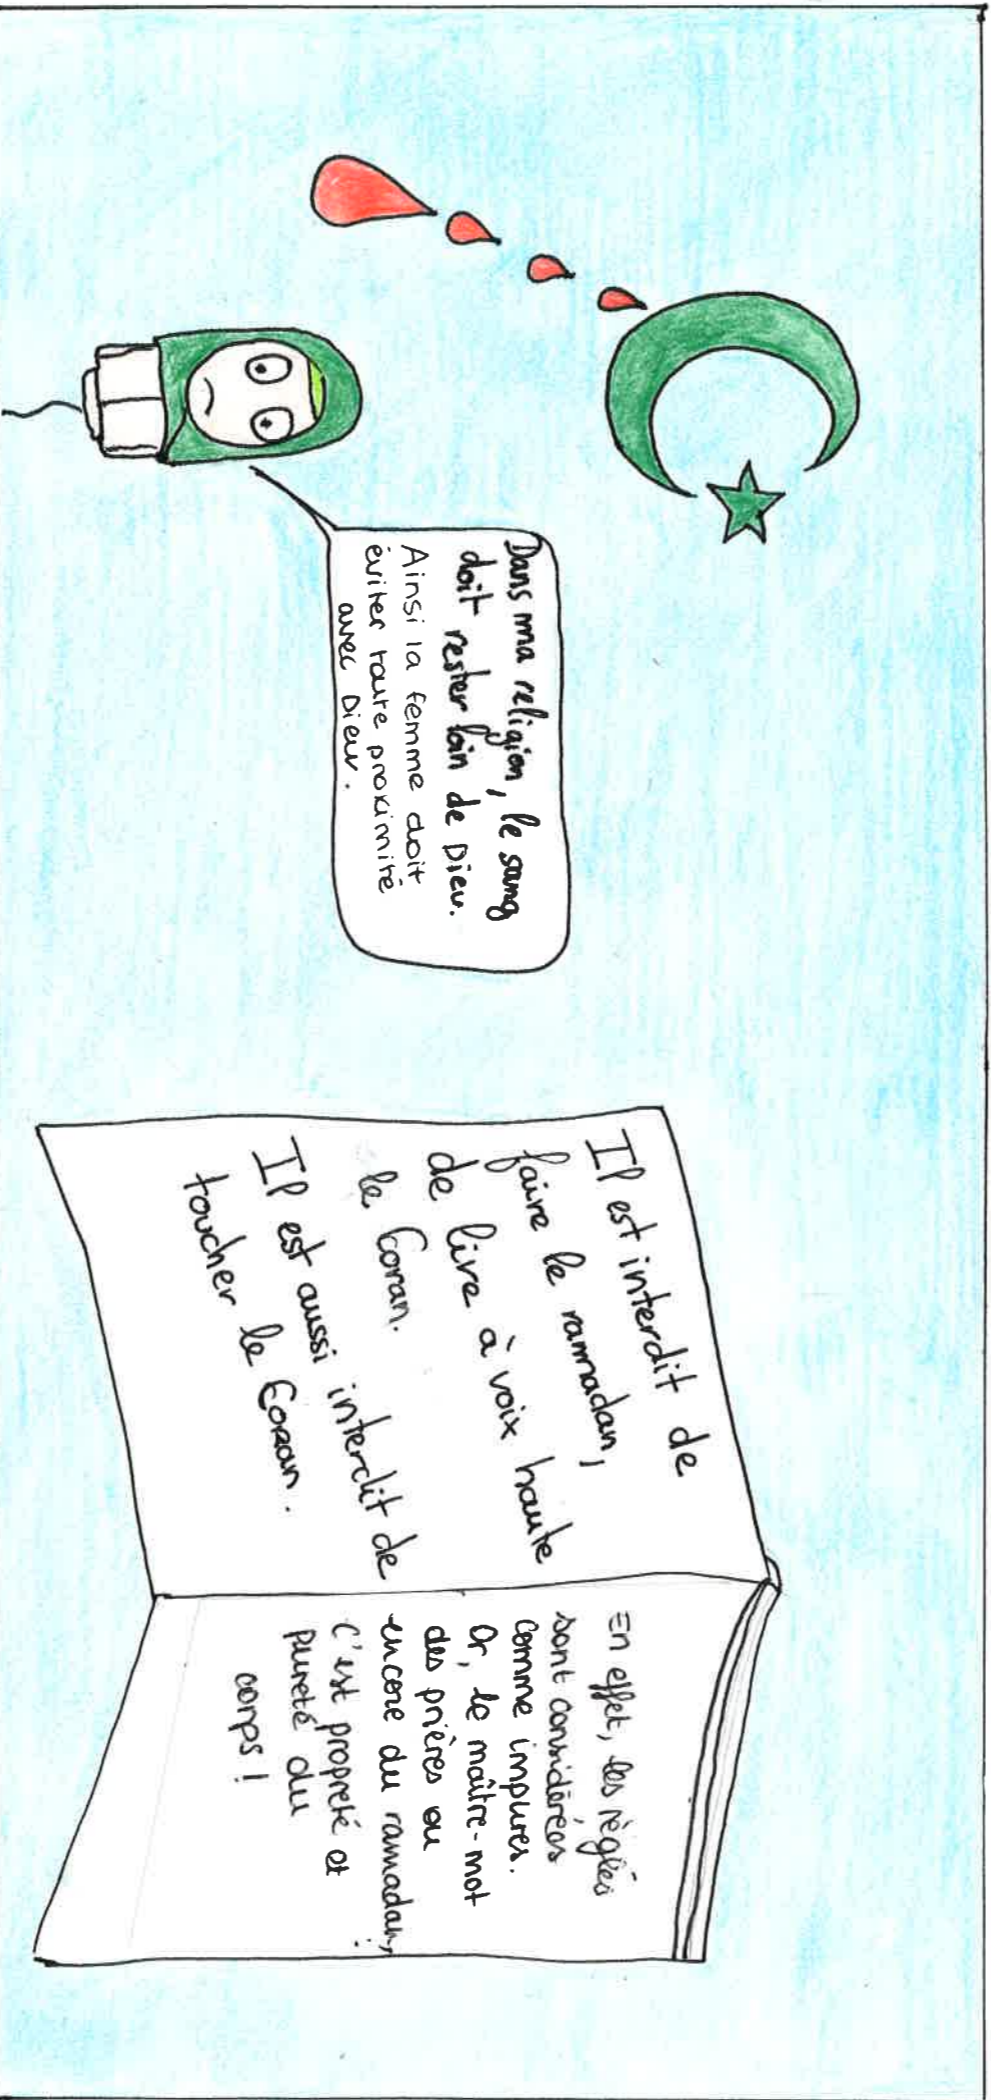 Dans ma religion, le sang
doit rester loin de Dieu.
Ainsi la femme doit
éviter toute proximité
avec Dieu.
Il est interdit de
faire le ramadan,
de lire à voix haute
le Coran.
Il est aussi interdit de
toucher le Coran.
En effet, les règles
sont considérées
comme impures.
Or, le maître-mot
des prières ou
encore du ramadan,
c'est propreté et
pureté du
corps !